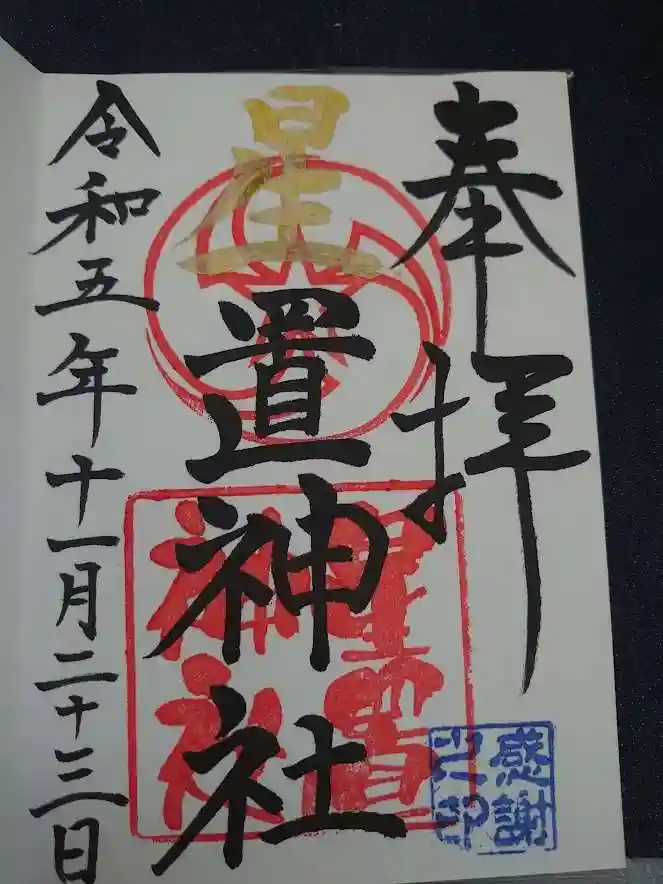 奉拝
星置神社
令和五年十一月二十三日
星置
神社
感謝
之印